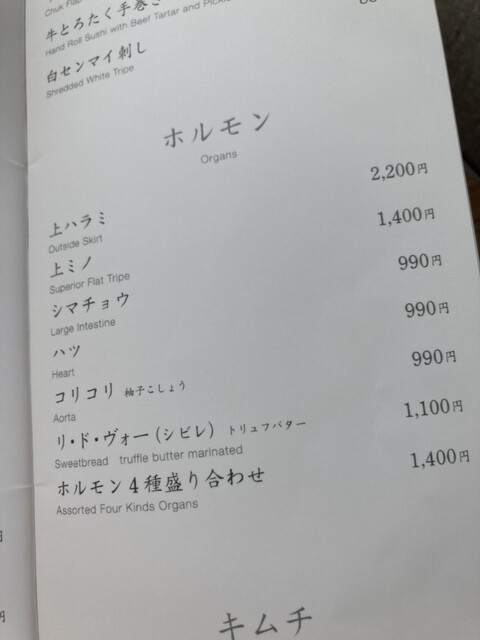 Chuk Flap
牛とろたく手巻き
Hand Roll Sushi with Beef Tartar and
白センマイ刺し
Shredded White Tripe
ホルモン
Organs
上ハラミ 2,200円
Outside Skirt
上ミノ 1,400円
Superior Flat Tripe
シマチョウ 990円
Large Intestine
ハツ 990円
Heart
コリコリ 柚子こしょう 990円
Aorta
リ・ド・ヴォー(シビレ) トリュフバター 1,100円
Sweetbread truffle butter marinated
ホルモン4種盛り合わせ 1,400円
Assorted Four Kinds Organs
キムチ
円
円